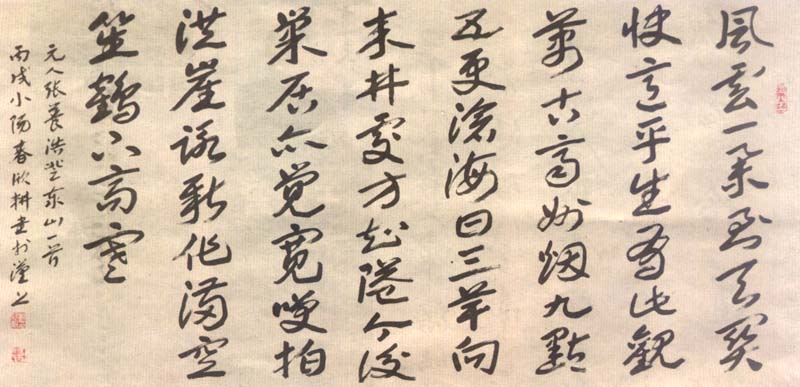 風雲一舉到天關
快意平生有此觀
萬古齊州烟九點
五更滄海日三竿向
来井處方知隘今後
巢居亦覺寬笑拍
洪崖詠新作滿空
笙鶴下高寒
元人張養浩登泰山一首
丙戌小陽春欣耕書於漢上